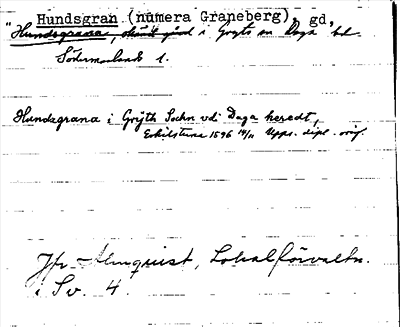 Hundsgran (numera Graneberg), gd,
"Hundsgrana, i Gryts sn Daga hd.
Södermanlands l.
Hundzgrana i Grÿth Sochn vdi Daga heredt,
Eskilstuna 1596 Upps. dipl. orig.
Jfr Almquist, Lokalförvaltn.
i Sv. 4.